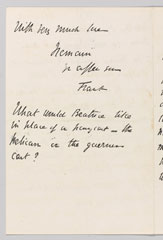 With very much love
I remain
yr affec son
Frank
What would Beatrice like
in place of a − the
Pelican in the